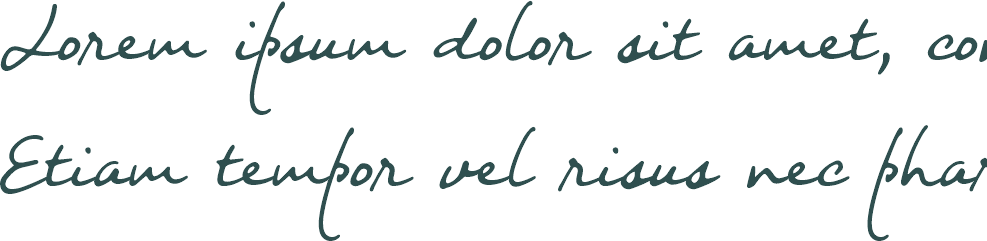 Lorem ipsum dolor sit amet, con
Etiam tempor vel risus nec phar